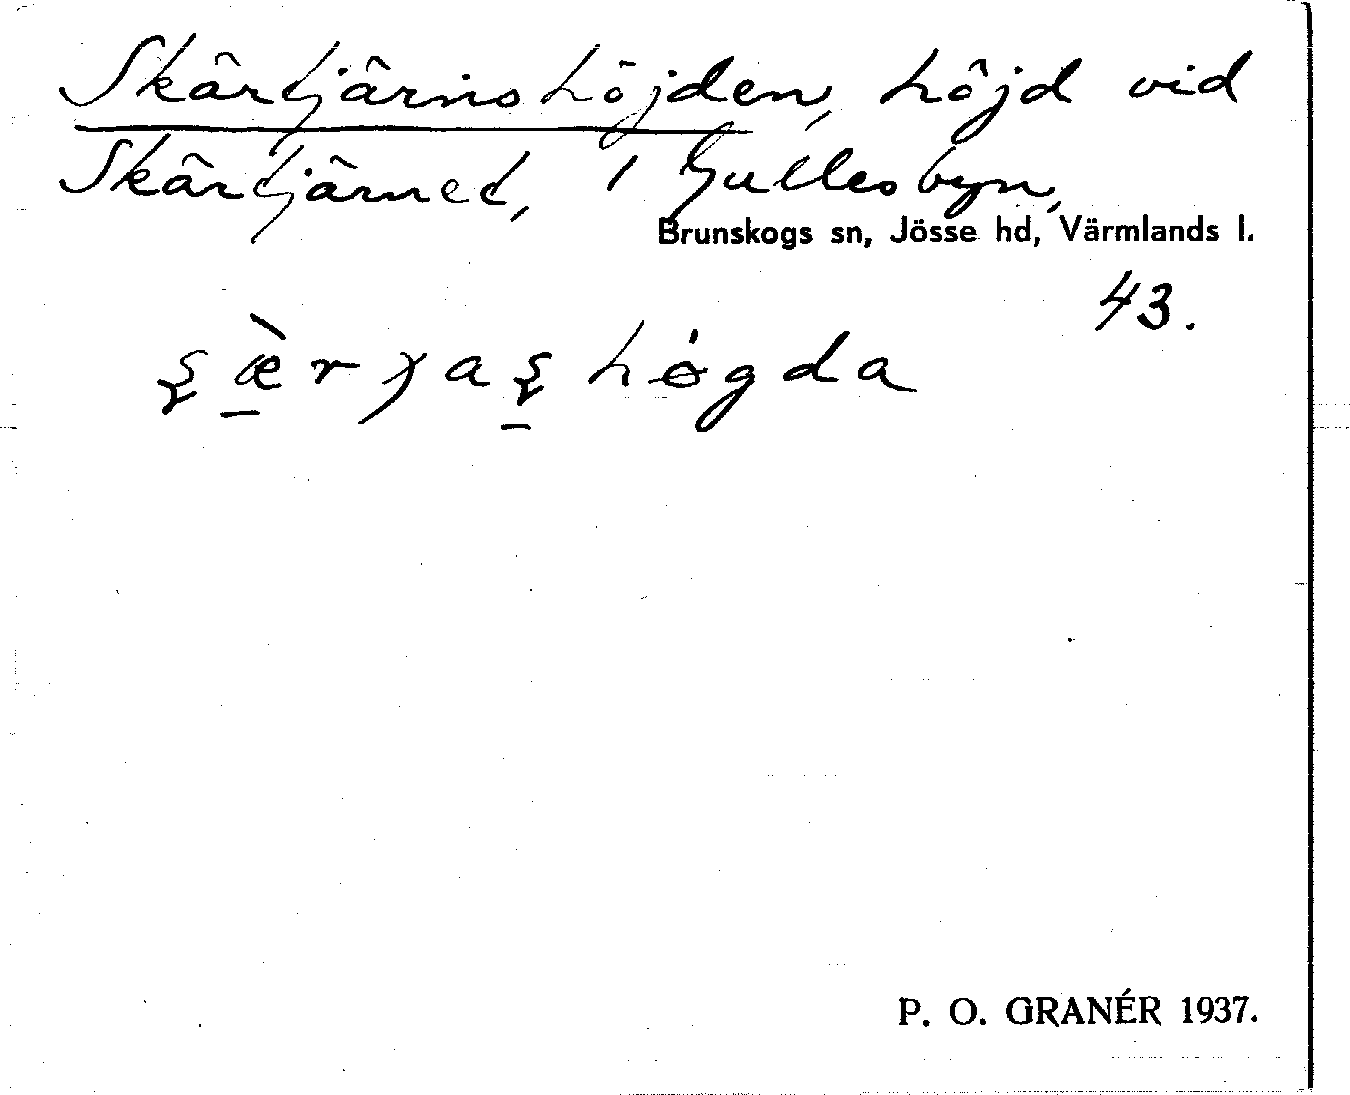 Skärtjärnshöjden, höjd vid
Skärtjärnet, i Gullesbyn,
Brunskogs sn, Jösse hd, Värmlands l.
43.
P. O. GRANÉR 1937.